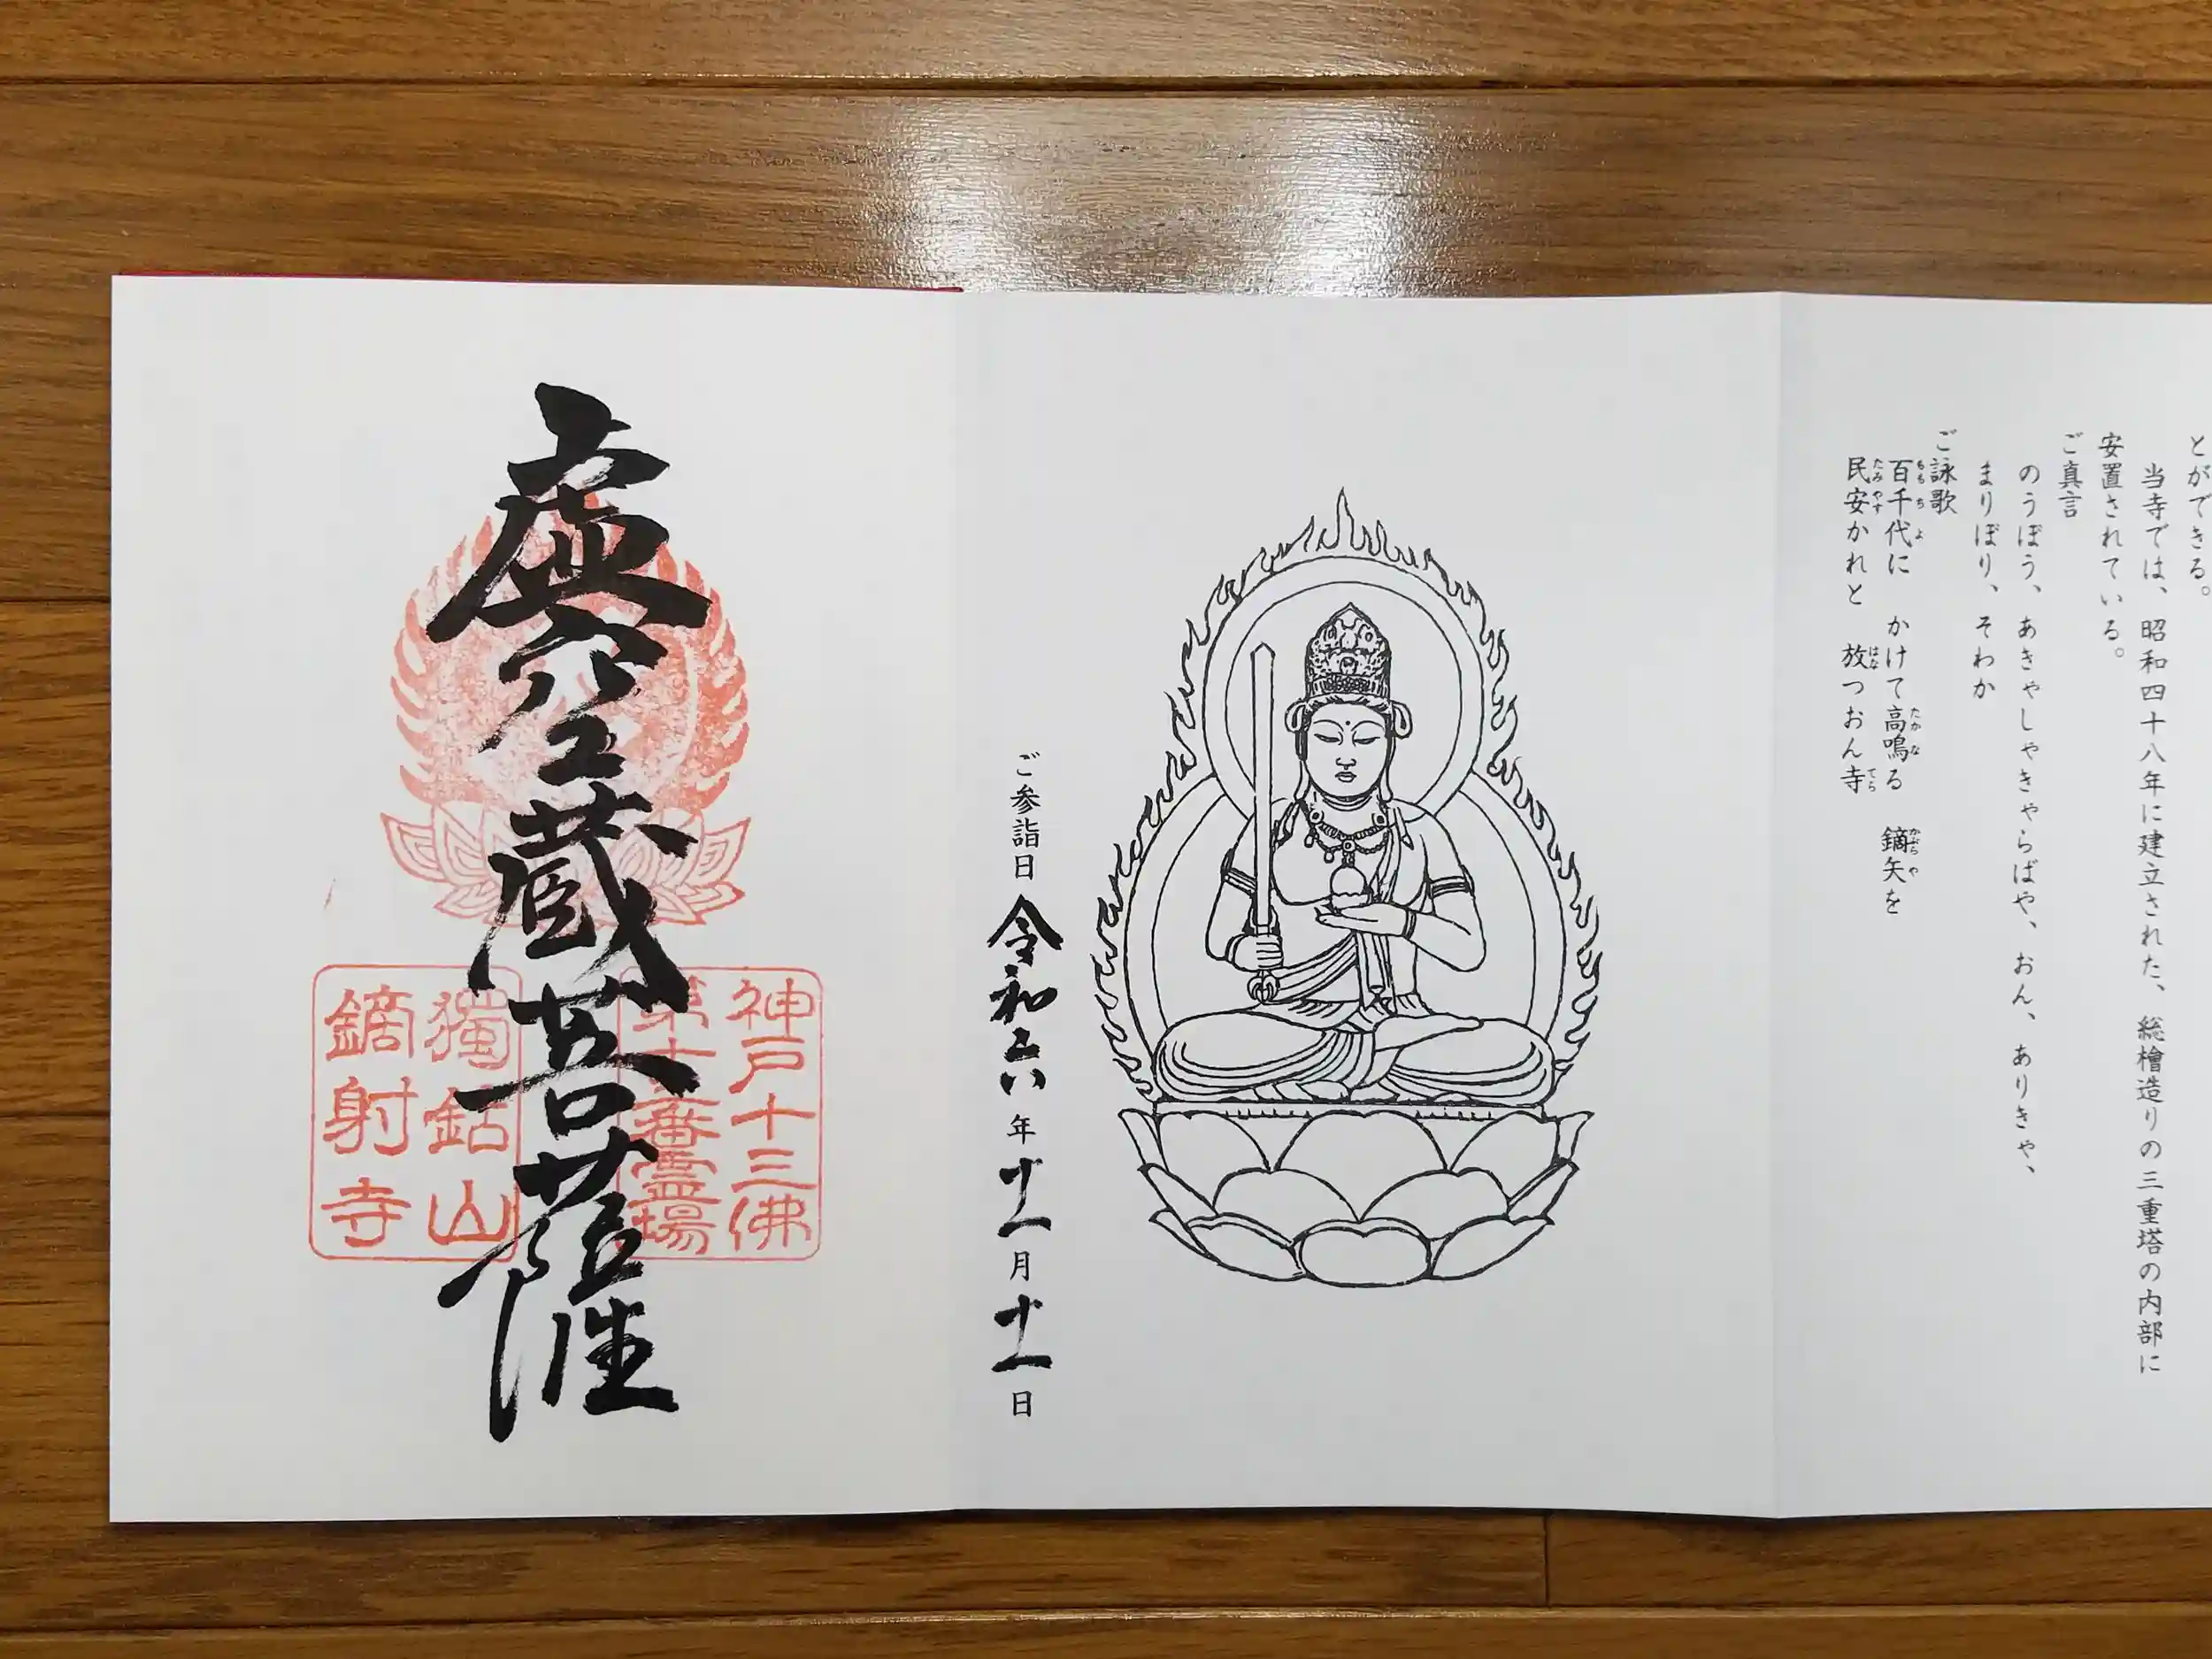 とができる。
当寺では、昭和四十八年に建立された、総檜造りの三重塔の内部に
安置されている。
ご真言
のうぼう、あきゃしゃきゃらばや、おん、ありきゃ、
まりぼり、そわか
ご詠歌
百千代に　かけて高鳴る　鏑矢を
ももちよ　たかな　かぶらや
民安かれと　放つおん寺
たみやす　はな　てら
ご参詣日 令和六年十一月十一日
虚空蔵菩薩
神戸十三佛
第十三番霊場
獨鈷山
鏑射寺